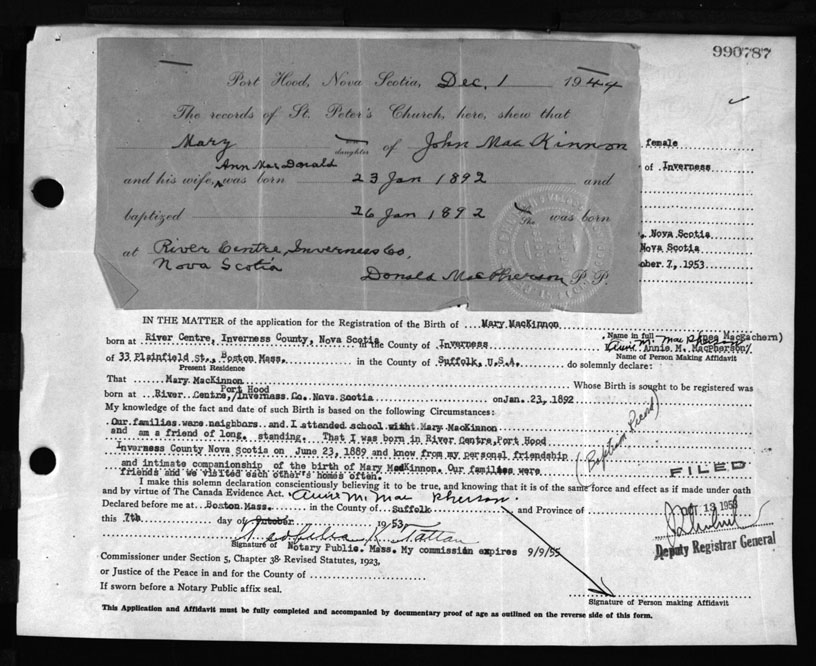 990787
Port Hood, Nova Scotia, Dec. 1 1944
The records of St. Peter's Church, here, shew that
Mary daughter of John MacKinnon
Ann MacDonald
and his wife, was born 23 Jan 1892 and
baptized 26 Jan 1892 She was born
at River Centre, Inverness Co,
Nova Scotia
Donald MacPherson P. P.
female
of Inverness
Nova Scotia
Nova Scotia
ober 7, 1953
IN THE MATTER of the application for the Registration of the Birth of Mary MacKinnon
Name in full (nee MacEachern)
born at River Centre, Inverness County, Nova Scotia in the County of Inverness Annie M. MacPherson
of 33 Plainfield St., Boston Mass. in the County of Suffolk, U.S.A. do solemnly declare:
Name of Person Making Affidavit
Present Residence
That Mary MacKinnon Whose Birth is sought to be registered was
Port Hood
born at River Centre, Inverness Co. Nova Scotia on Jan. 23, 1892
My knowledge of the fact and date of such Birth is based on the following Circumstances:
Our families were neighbors and I attended school with Mary MacKinnon
and am a friend of long standing. That I was born in River Centre, Port Hood
Inverness County Nova Scotia on June 23, 1889 and know from my personal friendship
and intimate companionship of the birth of Mary MacKinnon. Our families were
friends and we visited each other's homes often.
(Baptism Record)
FILED
I make this solemn declaration conscientiously believing it to be true, and knowing that it is of the same force and effect as if made under oath
and by virtue of The Canada Evidence Act. Annie M. MacPherson.
Declared before me at Boston Mass. in the County of Suffolk and Province of
this 7th day of October 1953
OCT 13 1953
Deputy Registrar General
Signature of Notary Public. Mass. My commission expires 9/9/55
Commissioner under Section 5, Chapter 38 Revised Statutes, 1923,
or Justice of the Peace in and for the County of
If sworn before a Notary Public affix seal.
Signature of Person making Affidavit
This Application and Affidavit must be fully completed and accompanied by documentary proof of age as outlined on the reverse side of this form.